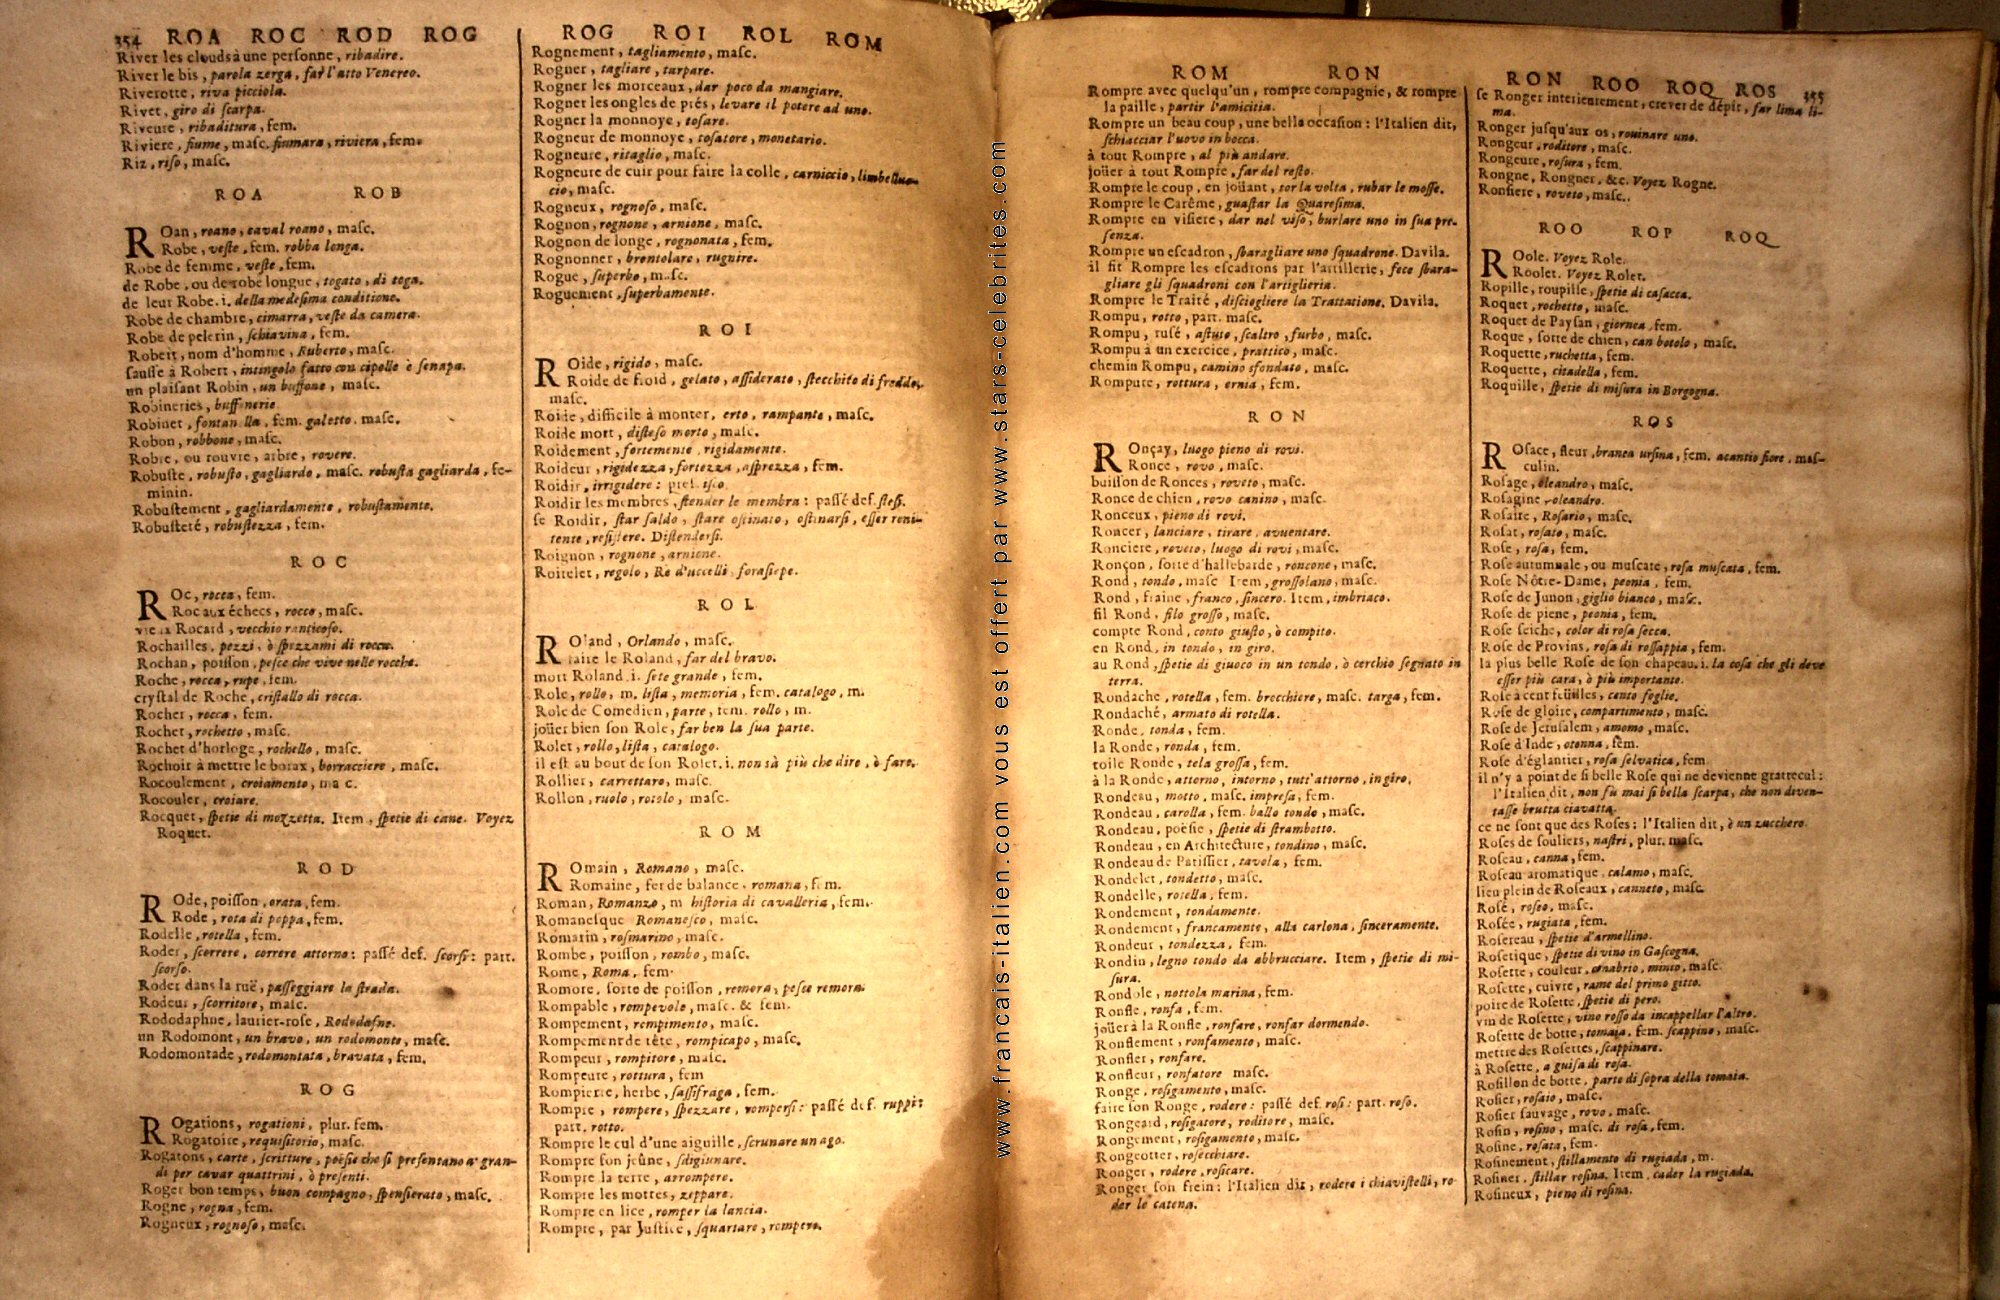 354 ROA ROC ROD ROG
River les clouds à une personne, ribadire.
River le bis, parola zerga, far l'atto Venereo.
Riverotte, riva picciola.
Rivet, giro di scarpa.
Riveure, ribaditura, fem.
Riviere, fiume, masc. fiumara, riviera, fem.
Riz, riso, masc.
ROA ROB
ROan, roano, caval roano, masc.
Robe, veste, fem. robba longa.
Robe de femme, veste, fem.
de Robe, ou de robe longue, togato, di toga.
de leur Robe. i. della medesima conditione.
Robe de chambre, cimarra, veste da camera.
Robe de pelerin, schiavina, fem.
Robert, nom d'homme, Ruberto, masc.
sausse à Robert, intingolo fatto con cipolle è senapa.
un plaisant Robin, un buffone, masc.
Robineries, buffonerie
Robinet, fontanella, fem. galetto, masc.
Robon, robbone, masc.
Robre, ou rouvre, arbre, rovere.
Robuste, robusto, gagliardo, masc. robusta gagliarda, fe-
minin.
Robustement, gagliardamente, robustamente.
Robusteté, robustezza, fem.
ROC
ROc, rocca, fem.
Roc aux échecs, rocco, masc.
vieux Rocard, vecchio ranticoso.
Rochailles, pezzi, ò spezzami di rocca.
Rochan, poisson, pesce che vive nelle rocche.
Roche, rocca, rupe, fem.
crystal de Roche, cristallo di rocca.
Rocher, rocca, fem.
Rochet, rochetto, masc.
Rochet d'horloge, rochello, masc.
Rochoir à mettre le borax, borracciere, masc.
Rocoulement, croiamento, masc.
Rocouler, croiare.
Rocquet, spetie di mozzetta. Item, spetie di cane. Voyez
Roquet.
ROD
ROde, poisson, orata, fem.
Rode, rota di poppa, fem.
Rodelle, rotella, fem.
Roder, scorrere, correre attorno: passé def. scorsi: part.
scorso.
Roder dans la ruë, passeggiare la strada.
Rodeur, scorritore, masc.
Rododaphne, laurier-rose, Rododafne.
un Rodomont, un bravo, un rodomonte, masc.
Rodomontade, rodomontata, bravata, fem.
ROG
ROgations, rogationi, plur. fem.
Rogatoire, requisitorio, masc.
Rogatons, carte, scritture, poesie che si presentano a' gran-
di per cavar quattrini, ò presenti.
Roger bon temps, buon compagno, spensierato, masc.
Rogne, rogna, fem.
Rogneux, rognoso, masc.
ROG ROI ROL ROM
Rognement, tagliamento, masc.
Rogner, tagliare, tarpare.
Rogner les morceaux, dar poco da mangiare.
Rogner les ongles de piés, levare il potere ad uno.
Rogner la monnoye, tosare.
Rogneur de monnoye, tosatore, monetario.
Rogneure, ritaglio, masc.
Rogneure de cuir pour faire la colle, carniccio, limbelluc-
cio, masc.
Rogneux, rognoso, masc.
Rognon, rognone, arnione, masc.
Rognon de longe, rognonata, fem.
Rognonner, brontolare, rugnire.
Rogue, superbo, masc.
Roguement, superbamente.
ROI
ROide, rigido, masc.
Roide de froid, gelato, assiderato, stecchito di freddo,
masc.
Roide, difficile à monter, erto, rampante, masc.
Roide mort, disteso morto, masc.
Roidement, fortemente, rigidamente.
Roideur, rigidezza, fortezza, asprezza, fem.
Roidir, irrigidere: pres. isco.
Roidir les membres, stender le membra: passé def. stesi.
se Roidir, star saldo, stare ostinato, ostinarsi, esser reni-
tente, resistere. Distendersi.
Roignon, rognone, arnione.
Roitelet, regolo, Re d'uccelli, forasiepe.
ROL
ROland, Orlando, masc.
faire le Roland, far del bravo.
mort Roland. i. sete grande, fem.
Role, rollo, m. lista, memoria, fem. catalogo, m.
Role de Comedien, parte, fem. rollo, m.
joüer bien son Role, far ben la sua parte.
Rolet, rollo, lista, catalogo.
il est au bout de son Rolet. i. non sà più che dire, ò fare.
Rollier, carrettaro, masc.
Rollon, ruolo, rotolo, masc.
ROM
ROmain, Romano, masc.
Romaine, fer de balance, romana, fem.
Roman, Romanzo, m historia di cavalleria, fem.
Romanesque Romanesco, masc.
Romarin, rosmarino, masc.
Rombe, poisson, rombo, masc.
Rome, Roma, fem.
Romore, sorte de poisson, remora, pesce remora.
Rompable, rompevole, masc. & fem.
Rompement, rompimento, masc.
Rompement de tête, rompicapo, masc.
Rompeur, rompitore, masc.
Rompeure, rottura, fem
Rompierre, herbe, sassifraga, fem.
Rompre, rompere, spezzare, rompersi: passé def. ruppi:
part. rotto.
Rompre le cul d'une aiguille, scrunare un ago.
Rompre son jeûne, sdigiunare.
Rompre la terre, arrompere.
Rompre les mottes, zeppare.
Rompre en lice, romper la lancia.
Rompre, par Justice, squartare, rompere.
www.francais-italien.com vous est offert par www.stars-celebrites.com
ROM RON
Rompre avec quelqu'un, rompre compagnie, & rompre
la paille, partir l'amicitia.
Rompre un beau coup, une belle occasion: l'Italien dit,
schiacciar l'uovo in bocca.
à tout Rompre, al più andare.
joüer à tout Rompre, far del resto.
Rompre le coup, en joüant, tor la volta, rubar le mosse.
Rompre le Carême, guastar la Quaresima.
Rompre en visiere, dar nel viso, burlare uno in sua pre-
senza.
Rompre un escadron, sbaragliare uno squadrone. Davila.
il fit Rompre les escadrons par l'artillerie, fece sbara-
gliare gli squadroni con l'artiglieria.
Rompre le Traité, disciogliere la Trattatione. Davila.
Rompu, rotto, part. masc.
Rompu, rusé, astuto, scaltro, furbo, masc.
Rompu à un exercice, prattico, masc.
chemin Rompu, camino sfondato, masc.
Rompure, rottura, ernia, fem.
RON
ROnçay, luogo pieno di rovi.
Ronce, rovo, masc.
buisson de Ronces, roveto, masc.
Ronce de chien, rovo canino, masc.
Ronceux, pieno di rovi.
Roncer, lanciare, tirare, avventare.
Ronciere, roveto, luogo di rovi, masc.
Ronçon, sorte d'hallebarde, roncone, masc.
Rond, tondo, masc Item, grossolano, masc.
Rond, fraine, franco, sincero. Item, imbriaco.
fil Rond, filo grosso, masc.
compte Rond, conto giusto, ò compito.
en Rond, in tondo, in giro.
au Rond, spetie di giuoco in un tondo, ò cerchio segnato in
terra.
Rondache, rotella, fem. brocchiere, masc. targa, fem.
Rondaché, armato di rotella.
Ronde, tonda, fem.
la Ronde, ronda, fem.
toile Ronde, tela grossa, fem.
à la Ronde, attorno, intorno, tutt'attorno, in giro.
Rondeau, motto, masc. impresa, fem.
Rondeau, carolla, fem. ballo tondo, masc.
Rondeau, poësie, spetie di strambotto.
Rondeau, en Architecture, tondino, masc.
Rondeau de Patissier, tavola, fem.
Rondelet, tondetto, masc.
Rondelle, rotella, fem.
Rondement, tondamente.
Rondement, francamente, alla carlona, sinceramente.
Rondeur, tondezza, fem.
Rondin, legno tondo da abbrucciare. Item, spetie di mi-
sura.
Rondole, nottola marina, fem.
Ronfle, ronfa, fem.
joüer à la Ronfle, ronfare, ronfar dormendo.
Ronflement, ronfamento, masc.
Ronfler, ronfare.
Ronfleur, ronfatore masc.
Ronge, rosigamento, masc.
faire son Ronge, rodere: passé def. rosi: part. roso.
Rongeard, rosigatore, roditore, masc.
Rongement, rosigamento, masc.
Rongeotter, rosecchiare.
Ronger, rodere, rosicare.
Ronger son frein: l'Italien dit, rodere i chiavistelli, ro-
der le catena.
RON ROO ROQ ROS 355
se Ronger interieurement, crever de dépit, far lima li-
ma.
Ronger jusqu'aux os, rouinare uno.
Rongeur, roditore, masc.
Rongeure, rosura, fem.
Rongne, Rongner, &c. Voyez Rogne.
Ronsiere, roveto, masc.
ROO ROP ROQ
ROole. Voyez Role.
Roolet. Voyez Rolet.
Ropille, roupille, spetie di casacca.
Roquet, rochetto, masc.
Roquet de Paysan, giornea, fem.
Roque, sorte de chien, can botolo, masc.
Roquette, ruchetta, fem.
Roquette, citadella, fem.
Roquille, spetie di misura in Borgogna.
ROS
ROsace, fleur, branca ursina, fem. acantio fiore, mas-
culin.
Rosage, oleandro, masc.
Rosagine oleandro.
Rosaire, Rosario, masc.
Rosat, rosato, masc.
Rose, rosa, fem.
Rose autumnale, ou muscate, rosa muscata, fem.
Rose Nôtre-Dame, peonia, fem.
Rose de Junon, giglio bianco, masc.
Rose de piene, peonia, fem.
Rose seiche, color di rosa secca.
Rose de Provins, rosa di rossappia, fem.
la plus belle Rose de son chapeau. i. la cosa che gli deve
esser più cara, ò più importante.
Rose à cent feüilles, cento foglie.
Rose de gloire, compartimento, masc.
Rose de Jerusalem, amomo, masc.
Rose d'Inde, otonna, fem.
Rose d'églantier, rosa selvatica, fem
il n'y a point de si belle Rose qui ne devienne grattecul:
l'Italien dit, non fu mai si bella scarpa, che non diven-
tasse brutta ciavatta.
ce ne sont que des Roses: l'Italien dit, è un zucchero.
Roses de souliers, nastri, plur. masc.
Roseau, canna, fem.
Roseau aromatique, calamo, masc.
lieu plein de Roseaux, canneto, masc.
Rosé, roseo, masc.
Rosée, rugiata, fem.
Rosereau, spetie d'armellino.
Rosetique, spetie di vino in Gascogna.
Rosette, couleur, cinabrio, minio, masc.
Rosette, cuivre, rame del primo gitto.
poire de Rosette, spetie di pero.
vin de Rosette, vino rosso da incappellar l'altro.
Rosette de botte, tomaia, fem. scappino, masc.
mettre des Rosettes, scappinare.
à Rosette, a guisa di rosa.
Rosillon de botte, parte di sopra della tomaia.
Rosier, rosaio, masc.
Rosier sauvage, rovo, masc.
Rosin, rosino, masc. di rosa, fem.
Rosine, rosata, fem.
Rosinement, stillamento di rugiada, m.
Rosiner, stillar rosina. Item, cader la rugiada.
Rosineux, pieno di rosina.